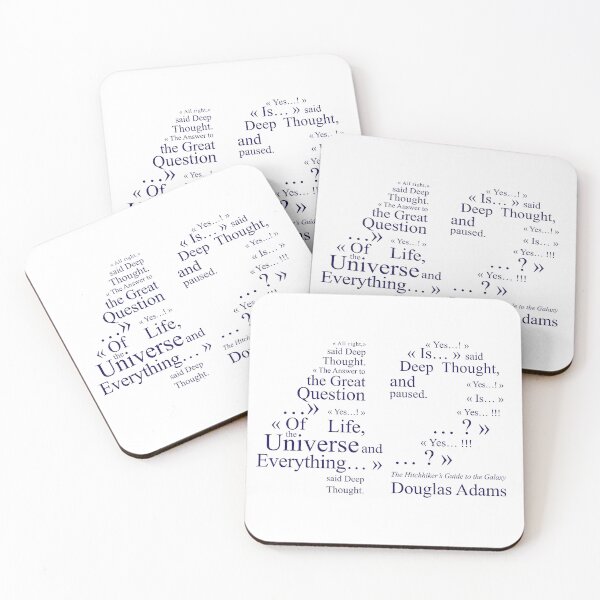 « All right,»
said Deep
Thought.
« The Answer to
the Great
Question
…»
« Yes…! »
« Of
« Yes…! »
« Is… » said
Deep Thought,
and
paused.
« All right,»
said Deep
Thought.
« The Answer to
the Great
Question
…»
« Yes…! »
« Of Life,
the
Universe and
Everything… »
« Yes…! »
« Is… » said
Deep Thought,
and
paused.
« Yes…! »
« Is… »
« Yes… !!!
… ? »
« Yes… !!!
… ? »
Guide to the Galaxy
Adams
« All right,»
said Deep
Thought.
« The Answer to
the Great
Question
…»
« Yes…! »
« Of Life,
the
Universe and
Everything… »
said Deep
Thought.
« Yes…! »
« Is… » said
Deep Thought,
and
paused.
« Yes…! »
« Is… »
« Yes… !!!
… ? »
… ? »
The Hitchhiker's
Douglas
« All right,»
said Deep
Thought.
« The Answer to
the Great
Question
…»
« Yes…! »
« Of Life,
the
Universe and
Everything… »
said Deep
Thought.
« Yes…! »
« Is… » said
Deep Thought,
and
paused.
« Yes…! »
« Is… »
« Yes… !!!
… ? »
« Yes… !!!
… ? »
The Hitchhiker's Guide to the Galaxy
Douglas Adams